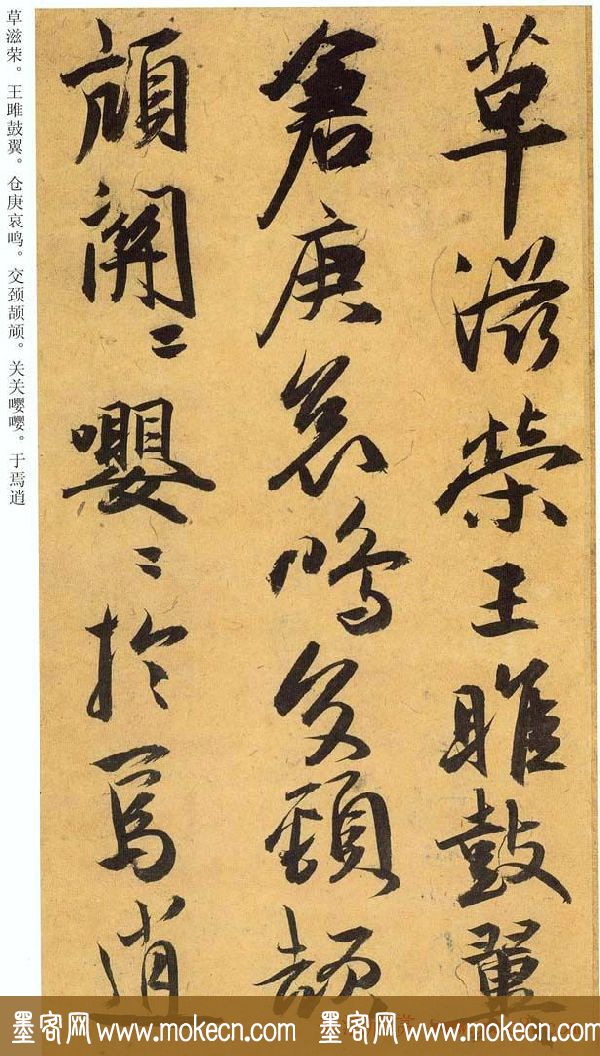 草滋榮王雎鼓翼
倉庚哀鳴交頸頡
頏關〻嚶〻於焉逍
草滋荣。王雎鼓翼。仓庚哀鸣。交颈颉颃。关关嘤嘤。于焉逍
墨客网 www.mokecn.com 墨客网 www.mokecn.com